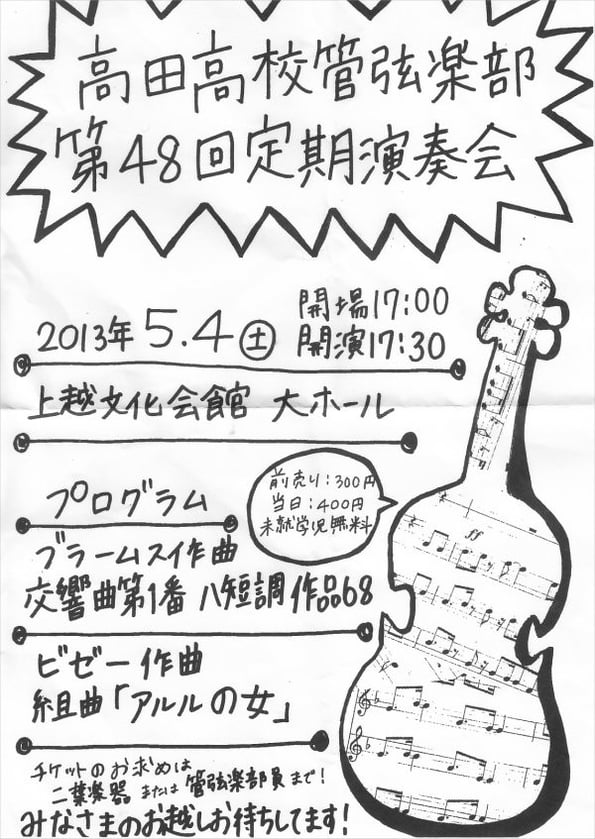 高田高校管弦楽部
第48回定期演奏会
2013年 5.4 ㊏
開場17:00
開演17:30
上越文化会館 大ホール
前売り:300円
当日:400円
未就学児無料
プログラム
ブラームス作曲
交響曲第1番 ハ短調 作品68
ビゼー作曲
組曲「アルルの女」
チケットのお求めは
二葉楽器 または 管弦楽部員まで!
みなさまのお越しお待ちしてます!
ff